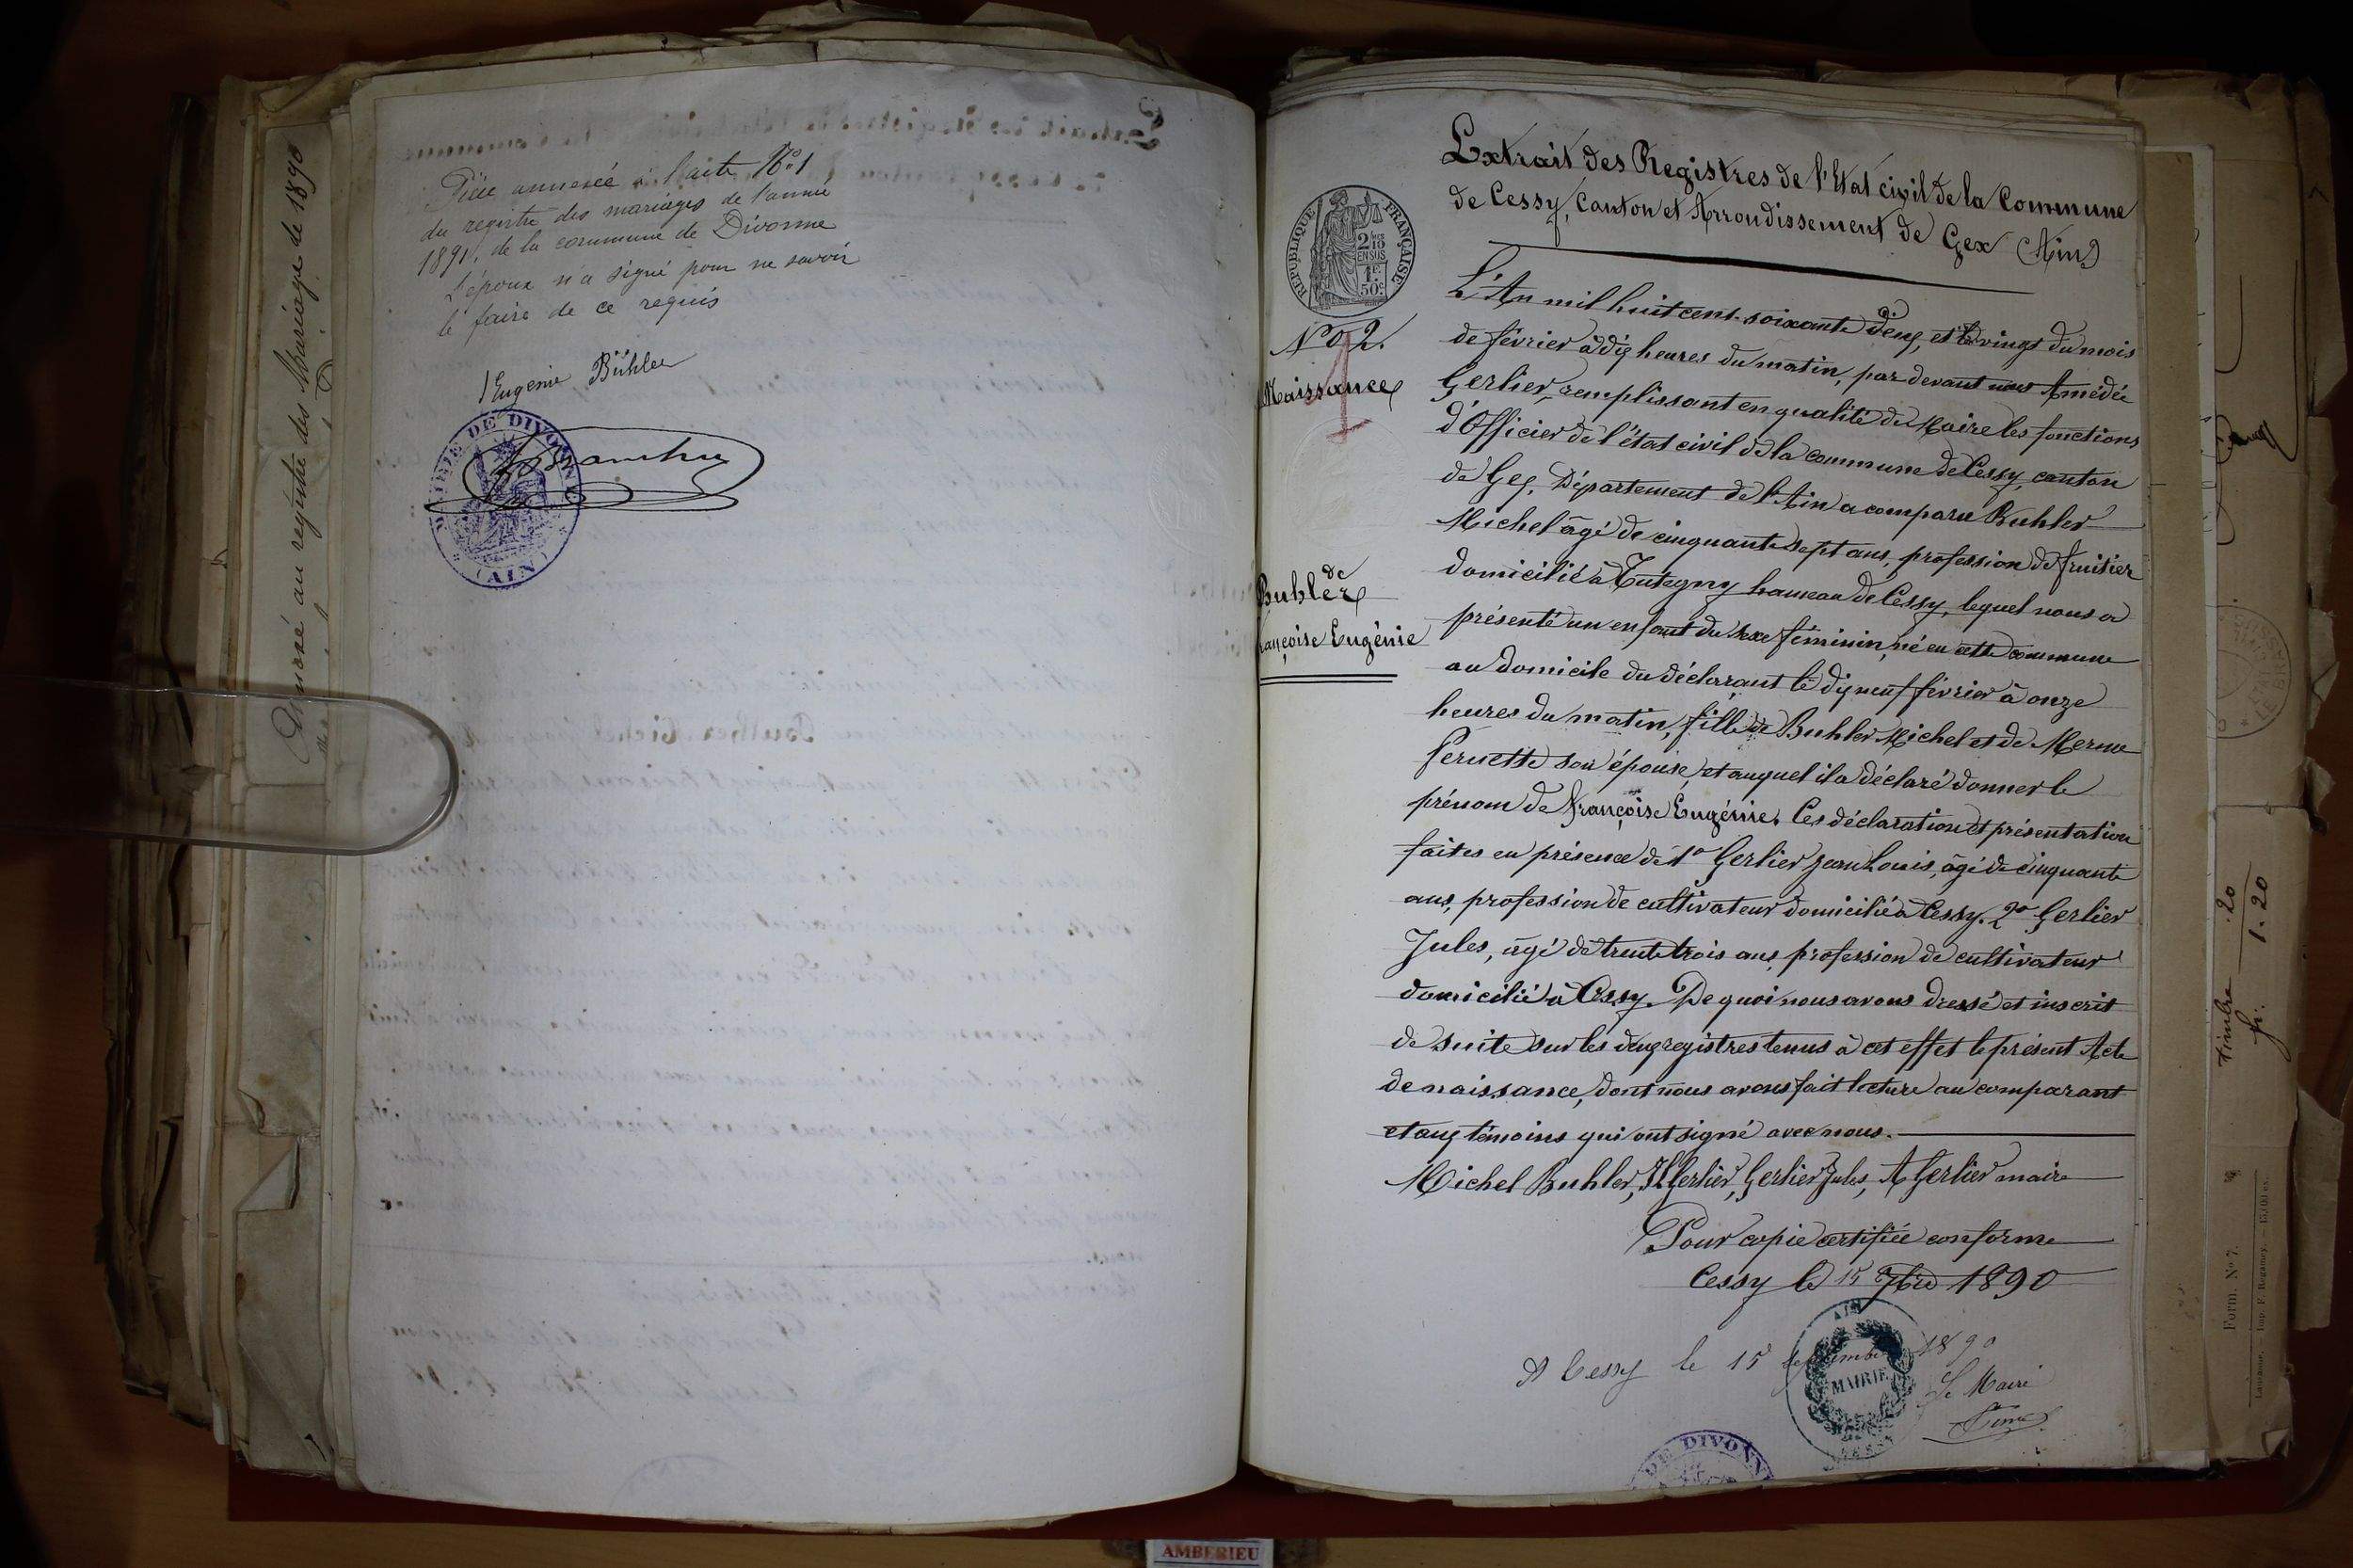 Pièce annexée à l'acte No 1
du registre des mariages de l'année
1891, de la commune de Divonne
L'époux n'a signé pour ne savoir
le faire de ce requis
Eugenie Bühler
MAIRIE DE DIVONNE
(AIN)
au registre des Mariages de 1890
Extrait des Registres de l'Etat civil de la Commune
de Cessy, Canton et Arrondissement de Gex (Ain)
RÉPUBLIQUE FRANÇAISE
2/10
EN SUS
1F.
50c
No 2.
1
Naissance
de
Buhler
Françoise Eugénie
L'An mil huit cent soixante deux, et le vingt du mois
de février à dix heures du matin, par devant nous Amédée
Gerlier, remplissant en qualité de Maire les fonctions
d'Officier de l'état civil de la commune de Cessy, canton
de Gex, Département de l'Ain a comparu Buhler
Michel âgé de cinquante sept ans, profession de fruitier
domicilié à Tutegny hameau de Cessy, lequel nous a
présenté un enfant du sexe féminin, né en cette commune
au domicile du déclarant le dix neuf février à onze
heures du matin, fille de Buhler Michel et de Merme
Pernette son épouse, et auquel il a déclaré donner le
prénom de Françoise Eugénie. Ces déclaration et présentation
faites en présence de 1o Gerlier Jean Louis, âgé de cinquante
ans, profession de cultivateur domicilié à Cessy. 2o Gerlier
Jules, âgé de trente trois ans, profession de cultivateur
domicilié à Cessy. De quoi nous avons dressé et inscrit
de suite sur les deux registres tenus à cet effet le présent Acte
de naissance, dont nous avons fait lecture au comparant
et aux témoins qui ont signé avec nous.
Michel Buhler, JL Gerlier, Gerlier Jules, A Gerlier maire
Pour copie certifiée conforme
Cessy le 15 7bre 1890
A Cessy le 15 septembre 1890
Le Maire
AIN
MAIRIE
DE DIVONN
timbre .20
fr. 1.20
Form. No 7.
AMBERIEU